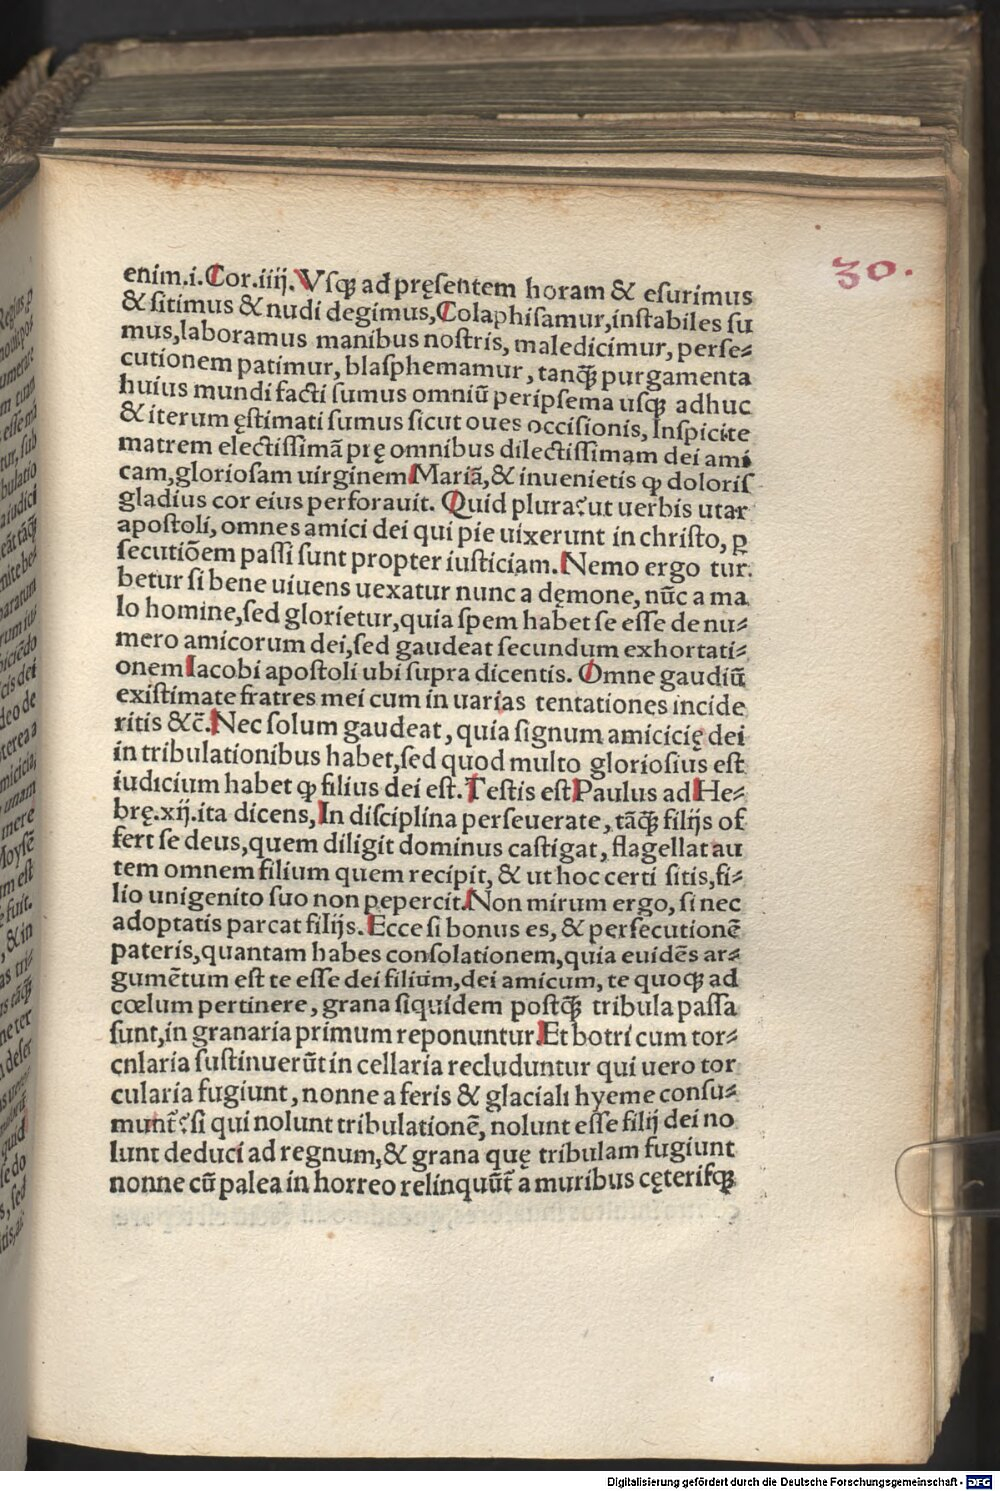 30.
enim.i.Cor.iiij.Vſqꝫ ad pręſentem horam & eſurimus
& ſitimus & nudi degimus,Colaphiſamur,inſtabiles ſu
mus,laboramus manibus noſtris, maledicimur, perſe⸗
cutionem patimur, blaſphemamur, tanꝙꝫ purgamenta
huius mundi facti ſumus omniū peripſema uſqꝫ adhuc
& iterum ęſtimati ſumus ſicut oues occiſionis, Inſpicite
matrem electiſſimā prę omnibus dilectiſſimam dei ami
cam,glorioſam uirginem Mariā,& inuenietis ꝙ doloris
gladius cor eius perforauit. Quid plura? ut uerbis utar
apoſtoli, omnes amici dei qui pie uixerunt in chriſto, ꝑ
ſecutiōem paſſi ſunt propter iuſticiam. Nemo ergo tur.
betur ſi bene uiuens uexatur nunc a dęmone, nūc a ma
lo homine,ſed glorietur,quia ſpem habet ſe eſſe de nu⸗
mero amicorum dei,ſed gaudeat ſecundum exhortati⸗
onem Iacobi apoſtoli ubi ſupra dicentis. Omne gaudiū
exiſtimate fratres mei cum in uarias tentationes incide
ritis &c̄. Nec ſolum gaudeat, quia ſignum amicicię dei
in tribulationibus habet,ſed quod multo glorioſius eſt
iudicium habet ꝙ filius dei eſt. Teſtis eſt Paulus ad He⸗
brę.xij.ita dicens, In diſciplina perſeuerate, tāꝙꝫ filijs of
fert ſe deus,quem diligit dominus caſtigat, flagellat au
tem omnem filium quem recipit, & ut hoc certi ſitis,fi⸗
lio unigenito ſuo non pepercit. Non mirum ergo, ſi nec
adoptatis parcat filijs. Ecce ſi bonus es, & perſecutionē
pateris,quantam habes conſolationem,quia euidēs ar⸗
gumētum eſt te eſſe dei filium,dei amicum, te quoqꝫ ad
cœlum pertinere, grana ſiquidem poſtꝙꝫ tribula paſſa
ſunt,in granaria primum reponuntur. Et botri cum tor⸗
cnlaria ſuſtinuerūt in cellaria recluduntur qui uero tor
cularia fugiunt, nonne a feris & glaciali hyeme conſu⸗
munt̄? ſi qui nolunt tribulationē, nolunt eſſe filij dei no
lunt deduci ad regnum,& grana quę tribulam fugiunt
nonne cū palea in horreo relinquūt̄ a muribus cęteriſqꝫ
Digitalisierung gefördert durch die Deutsche Forschungsgemeinschaft - DFG